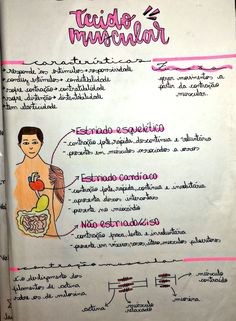 tecido
muscular
características
• responde aos estímulos → responsividade
• conduz estímulos → condutibilidade
• sofre contração → contratilidade
• sofre distensão → distensibilidade
• tem elasticidade
gera movimentos a
partir da contração
muscular.
→ Estriado esquelético
- contração forte, rápida, descontínua e voluntária
- presente em músculos associados a ossos
→ Estriado cardíaco
- contração forte, rápida, contínua e involuntária
- apresenta discos intercalares
- presente no miocárdio
→ Não estriado/liso
- contração fraca, lenta e involuntária
- presente em vísceras
contração muscular
• é o deslizamento dos
filamentos de actina
sobre os de miosina.
actina
músculo
relaxado
miosina
músculo
contraído